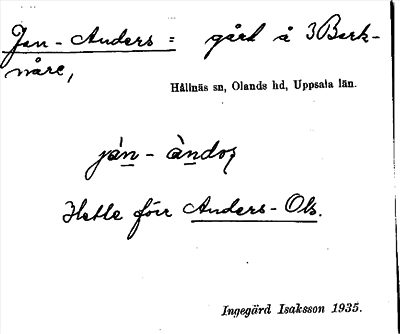 Jan-Anders = gård å 3 Bark-
nåre,
Hållnäs sn, Olands hd, Uppsala län.
jàn - àndoʂ
Hette förr Anders-Ols.
Ingegärd Isaksson 1935.